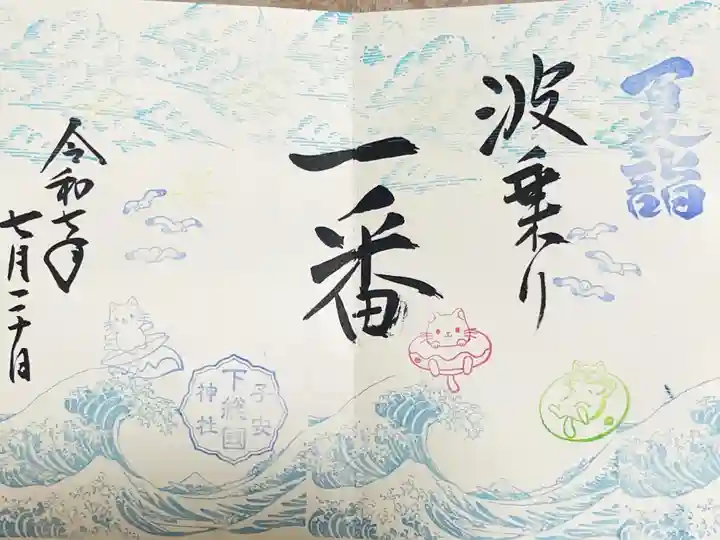 夏詣
波乗り
一番
子安
下総国
神社
令和七年
七月二十日